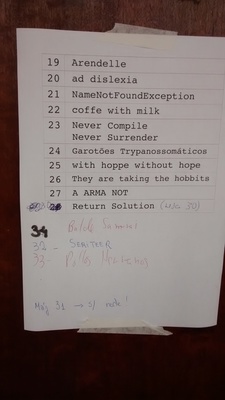 19 Arendelle
20 ad dislexia
21 NameNotFoundException
22 coffe with milk
23 Never Compile
Never Surrender
24 Garotões Trypanossomáticos
25 with hoppe without hope
26 They are taking the hobbits
27 A ARMA NOT
Return Solution
34
32 -
33 -
Maq 31 → s/ rede!